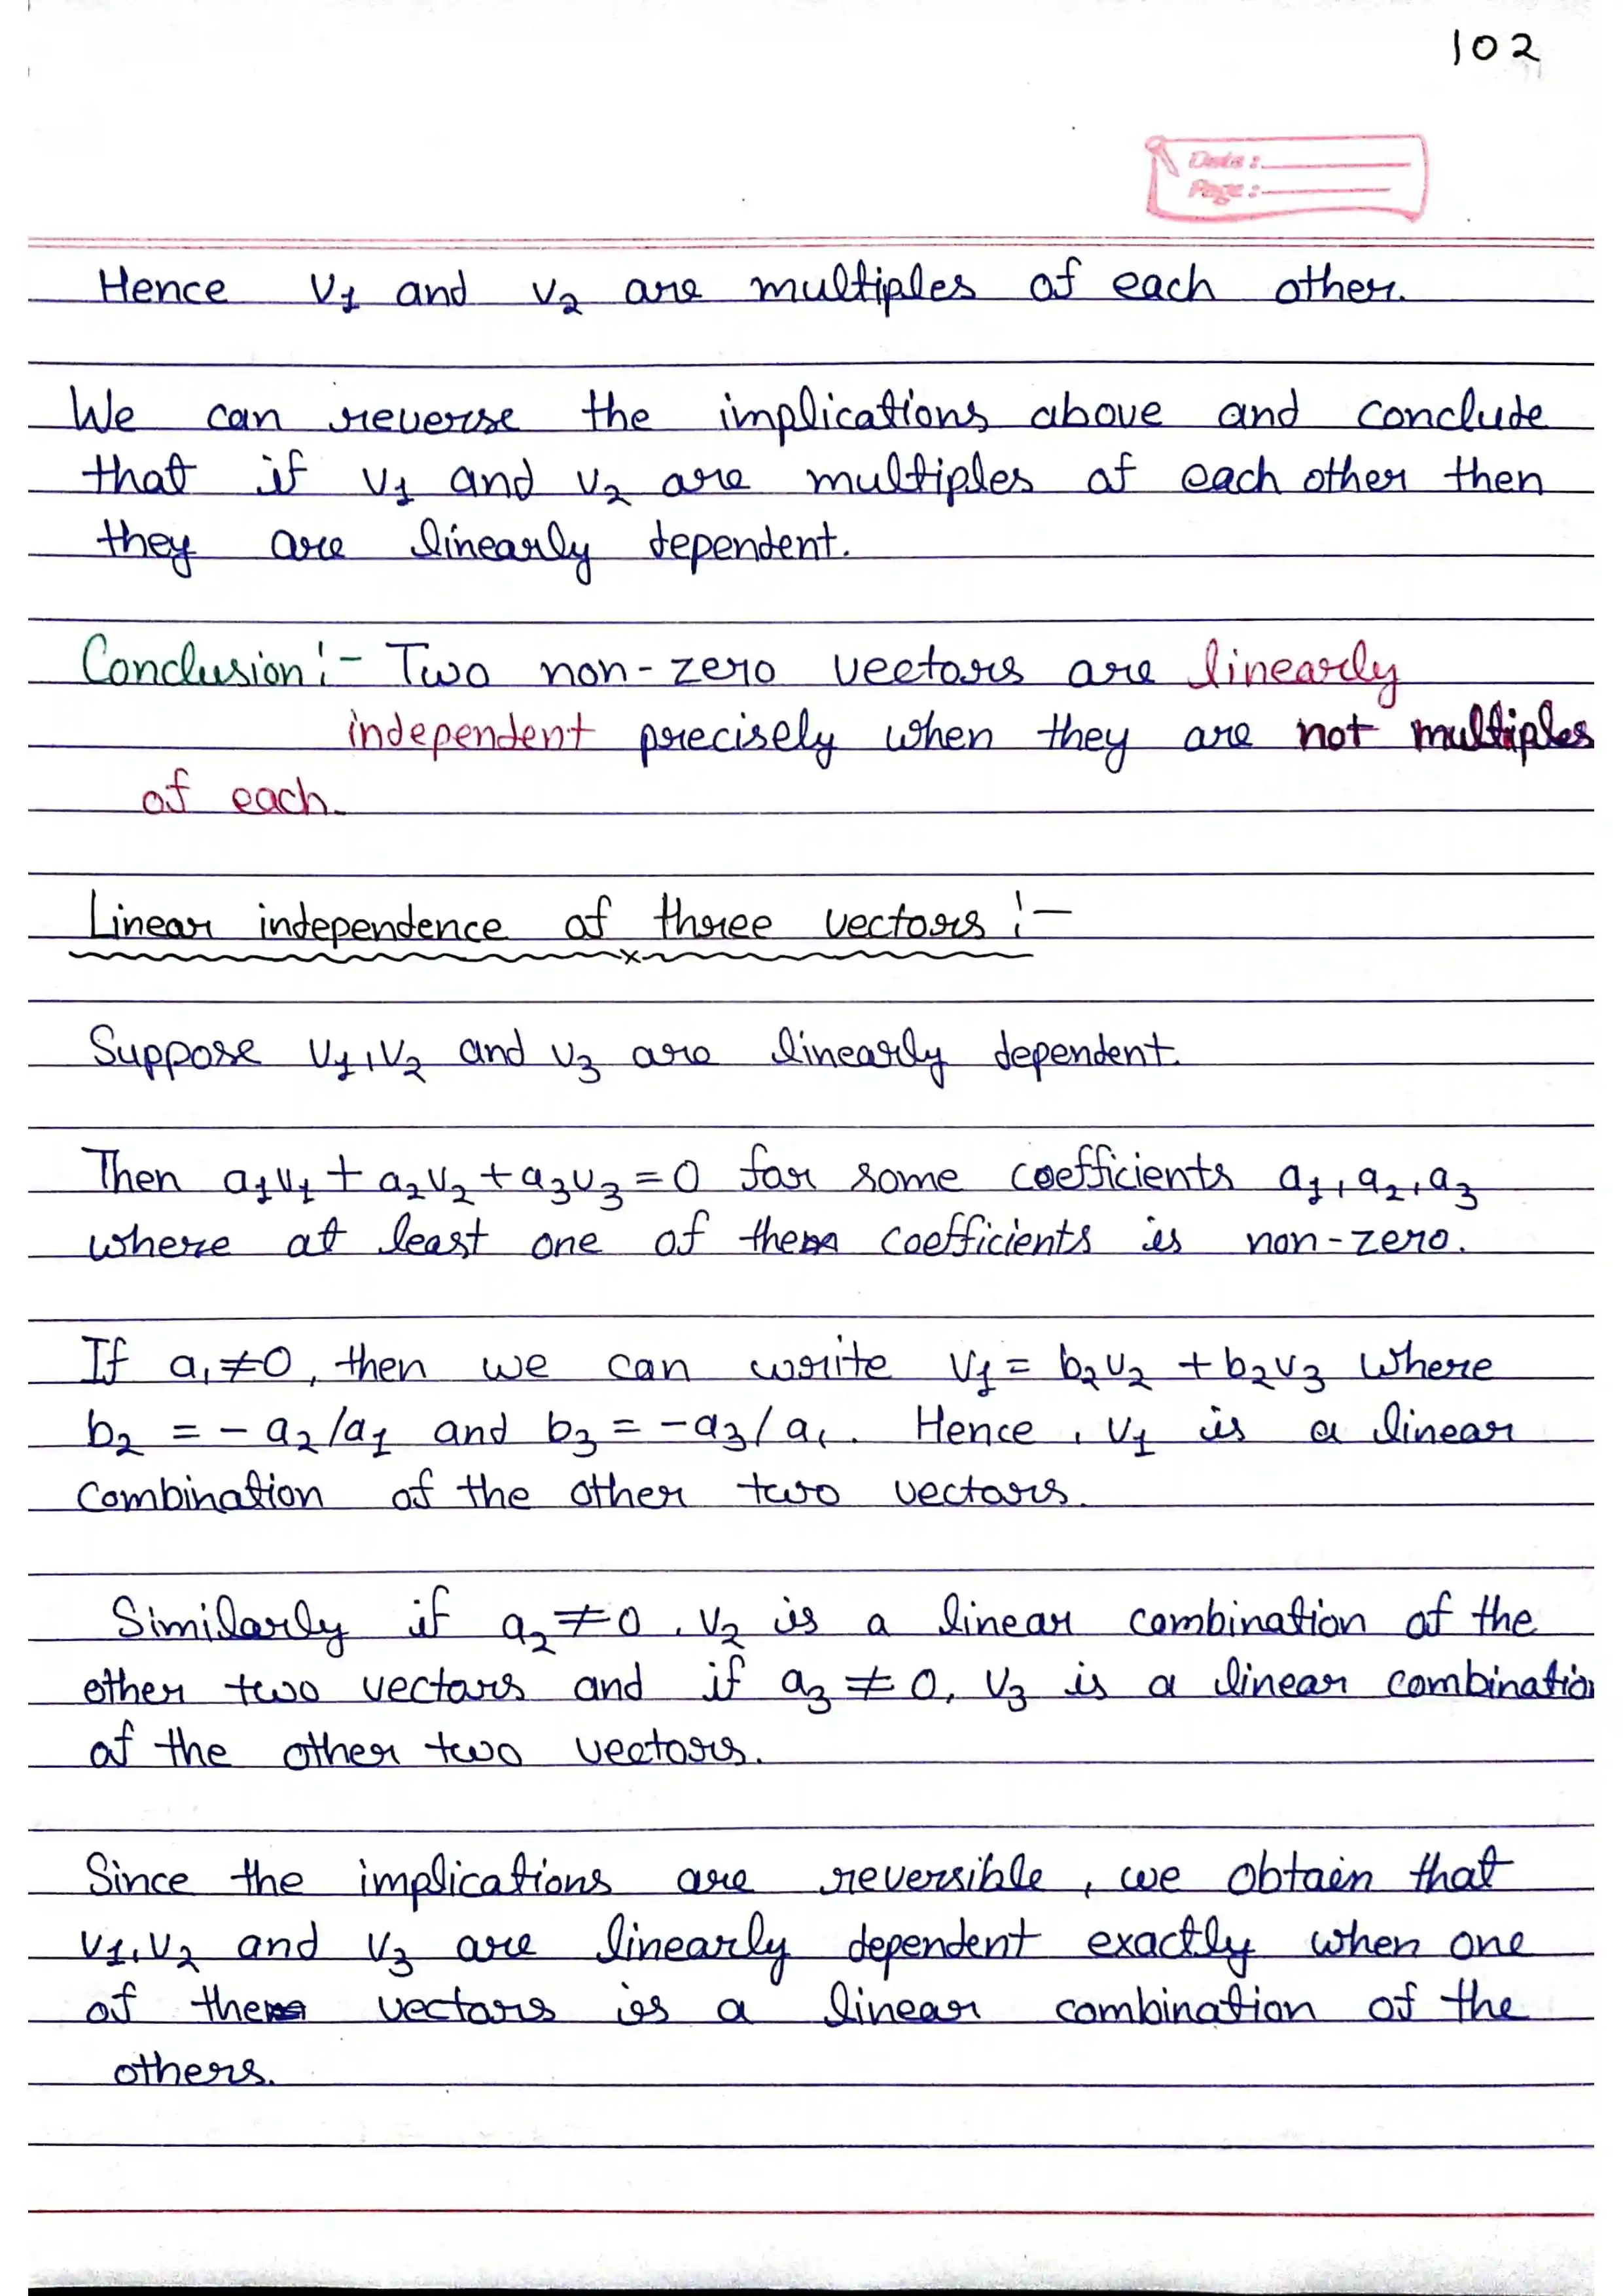 102
Date :
Page :
Hence v₁ and v₂ are multiples of each other.
We can reverse the implications above and conclude
that if v₁ and v₂ are multiples of each other then
they are linearly dependent.
Conclusion :- Two non-zero vectors are linearly
independent precisely when they are not multiples
of each.
Linear independence of three vectors :-
Suppose v₁, v₂ and v₃ are linearly dependent.
Then a₁v₁ + a₂v₂ + a₃v₃ = 0 for some coefficients a₁, a₂, a₃
where at least one of them coefficients is non-zero.
If a₁ ≠ 0, then we can write v₁ = b₂v₂ + b₂v₃ where
b₂ = - a₂/a₁ and b₃ = -a₃/a₁. Hence, v₁ is a linear
combination of the other two vectors.
Similarly if a₂ ≠ 0, v₂ is a linear combination of the
other two vectors and if a₃ ≠ 0, v₃ is a linear combination
of the other two vectors.
Since the implications are reversible, we obtain that
v₁, v₂ and v₃ are linearly dependent exactly when one
of the vectors is a linear combination of the
others.